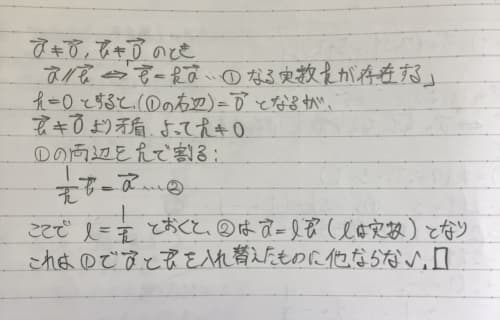 $\vec{a} \neq \vec{0}, \vec{b} \neq \vec{0}$ のとき
$\vec{a} /\!/ \vec{b} \Leftrightarrow$ 「$\vec{b} = k\vec{a}$ …① なる実数kが存在する」
k=0 とすると、(①の右辺) = $\vec{0}$ となるが、
$\vec{b} \neq \vec{0}$ より矛盾. よって k≠0
①の両辺をkで割る:
$\frac{1}{k}\vec{b} = \vec{a}$ …②
ここで $l = \frac{1}{k}$ とおくと、②は $\vec{a} = l\vec{b}$ (lは実数) となり
これは①で $\vec{a}$ と $\vec{b}$ を入れ替えたものに他ならない. □